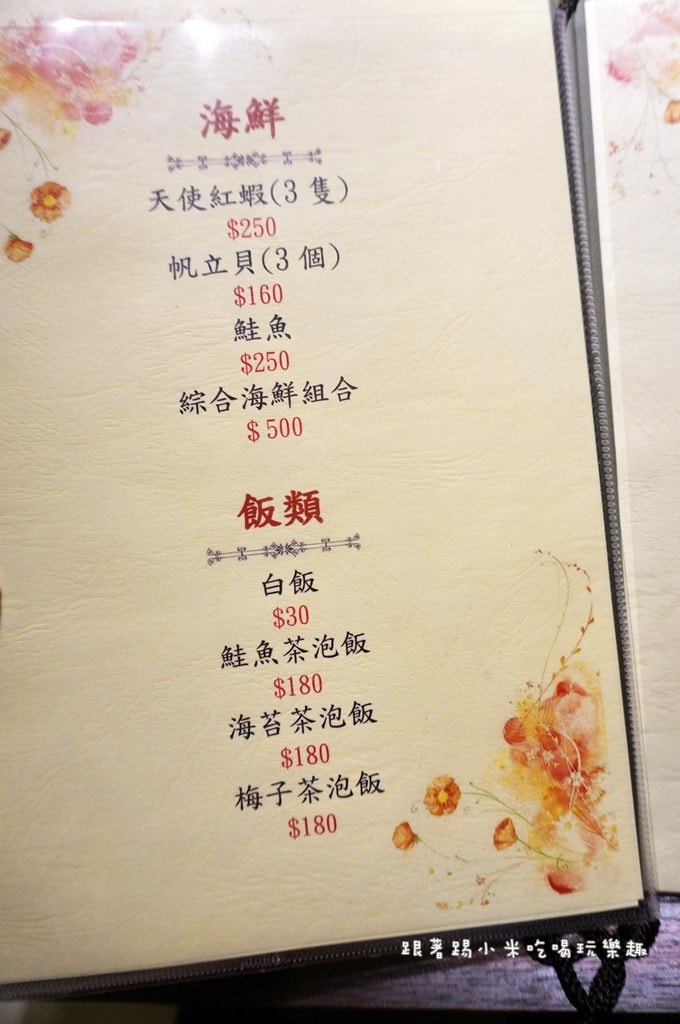 海鮮
天使紅蝦(3隻)
$250
帆立貝(3個)
$160
鮭魚
$250
綜合海鮮組合
$500
飯類
白飯
$30
鮭魚茶泡飯
$180
海苔茶泡飯
$180
梅子茶泡飯
$180
跟著踢小米吃喝玩樂趣